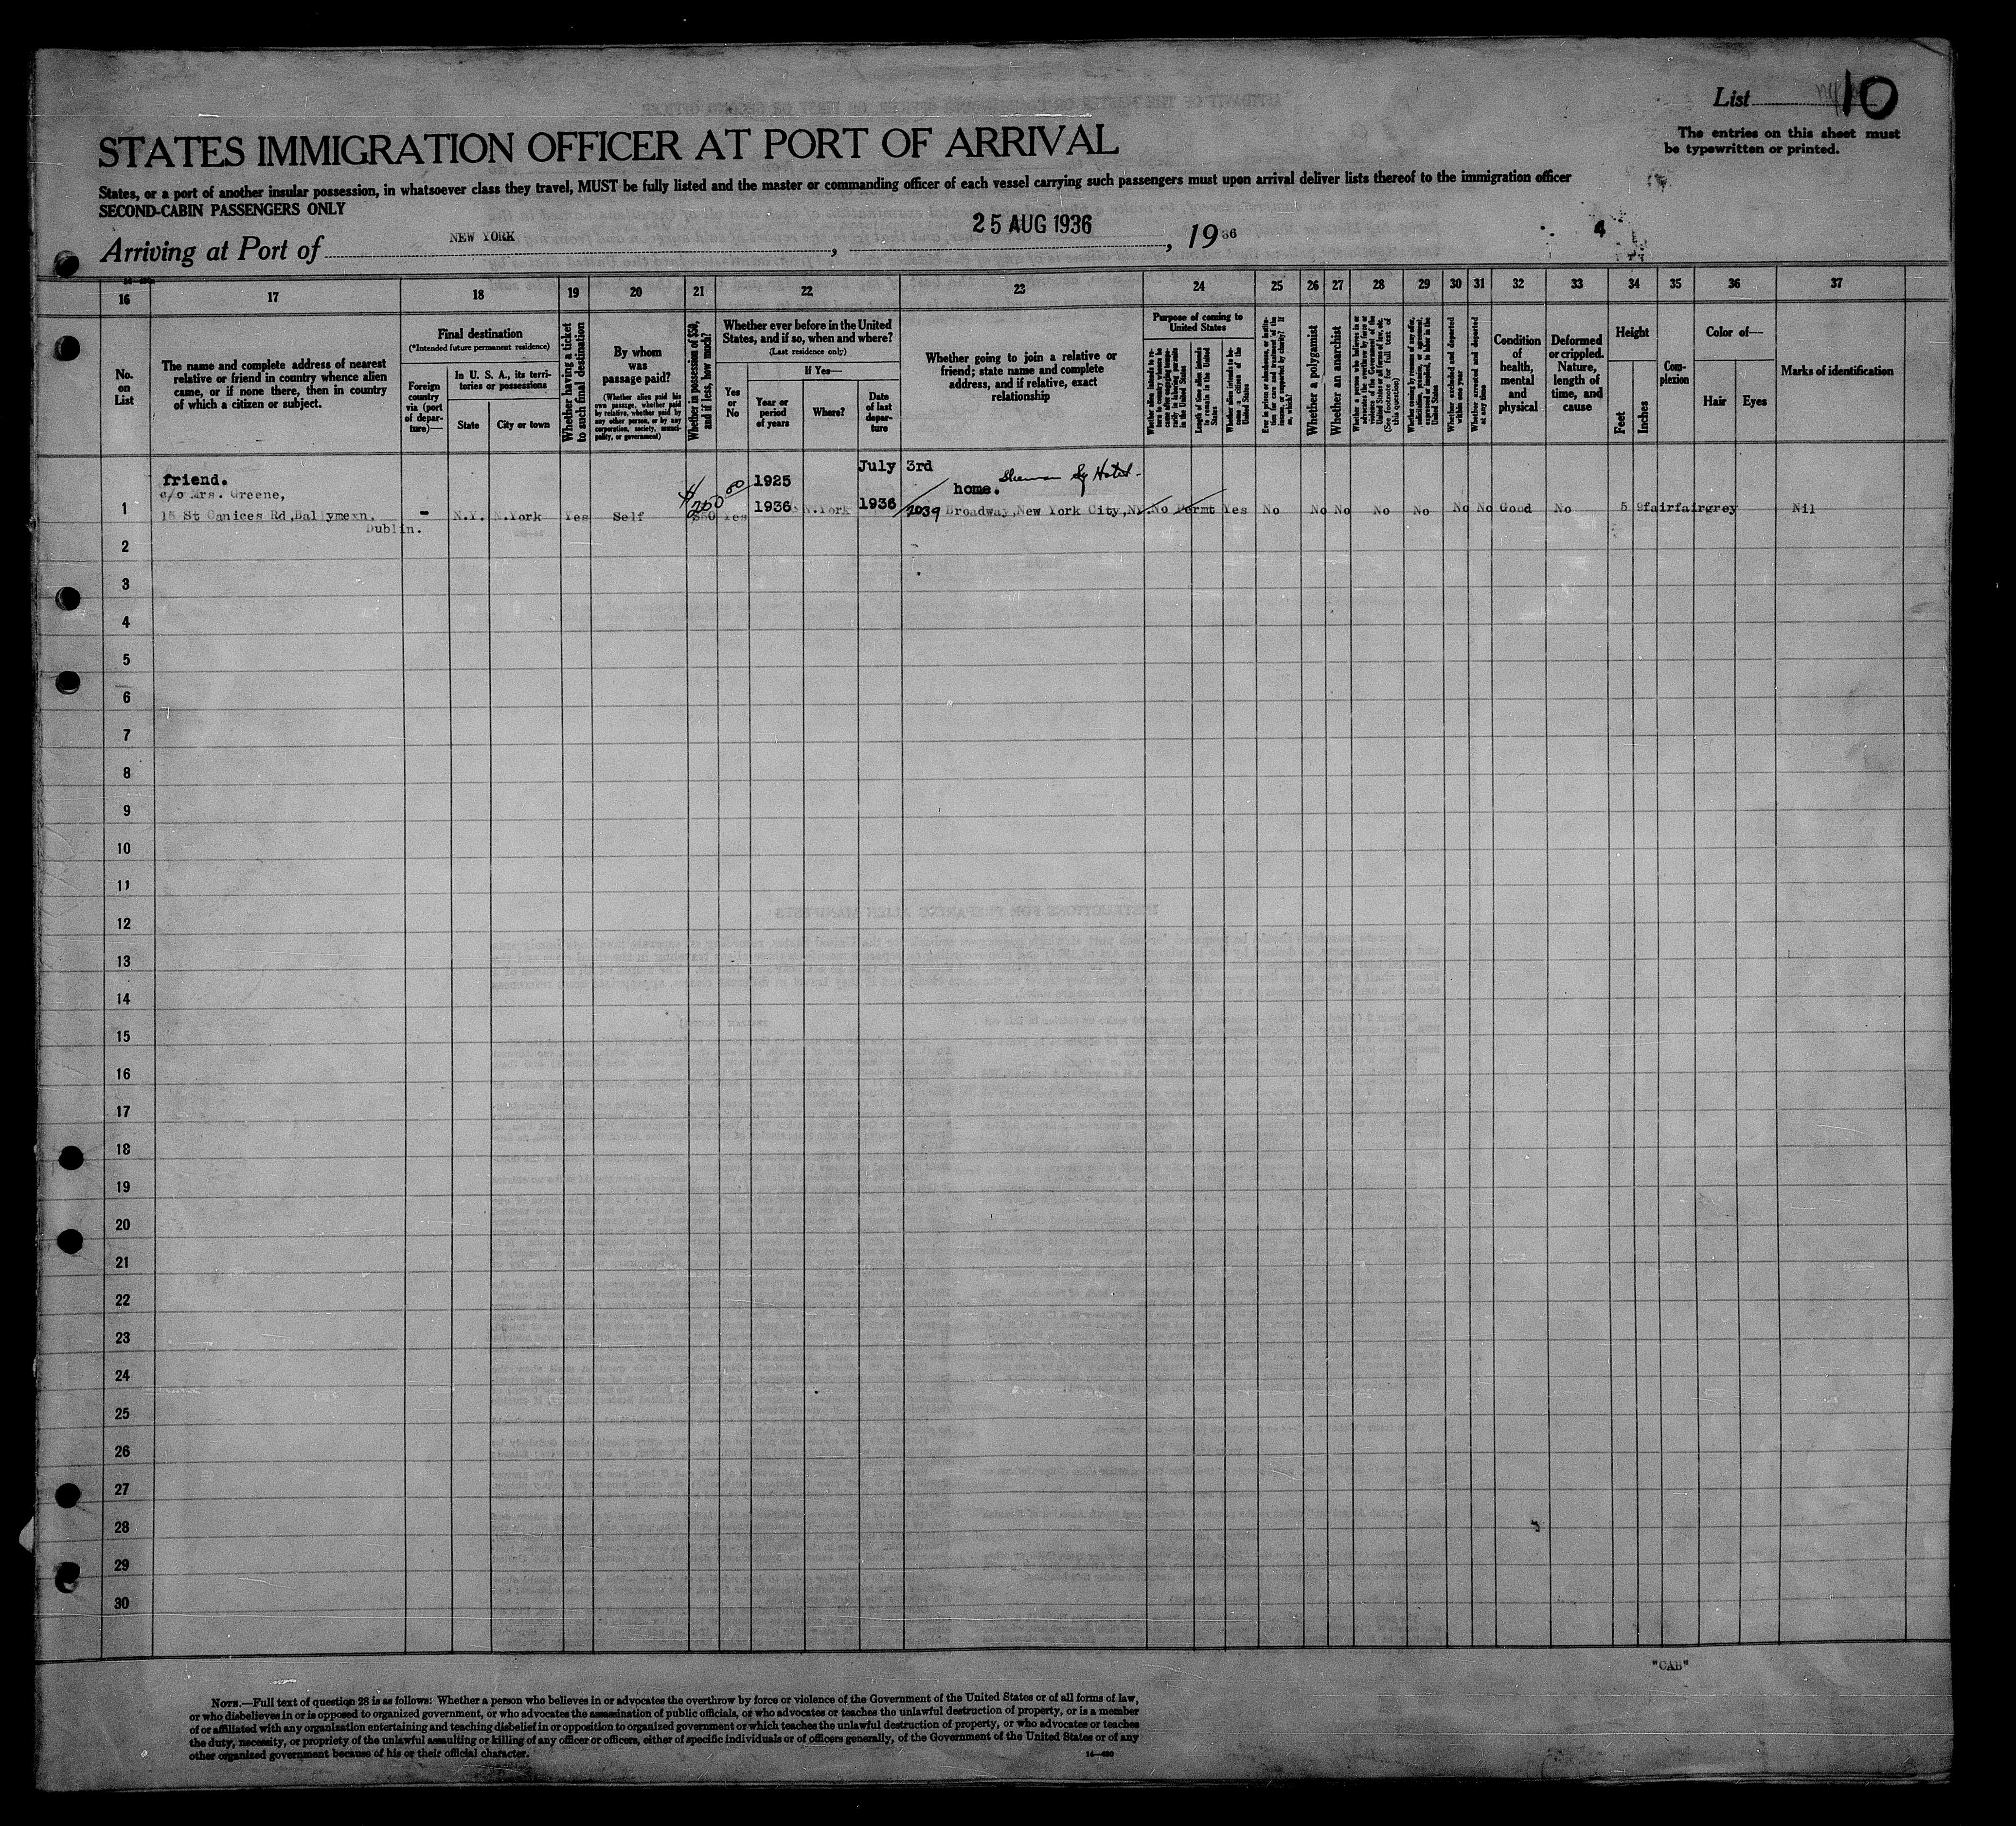 List 10
The entries on this sheet must
be typewritten or printed.
STATES IMMIGRATION OFFICER AT PORT OF ARRIVAL
States, or a port of another insular possession, in whatsoever class they travel, MUST be fully listed and the master or commanding officer of each vessel carrying such passengers must upon arrival deliver lists thereof to the immigration officer
SECOND-CABIN PASSENGERS ONLY
Arriving at Port of NEW YORK, 25 AUG 1936, 1936
16 17 18 19 20 21 22 23 24 25 26 27 28 29 30 31 32 33 34 35 36 37
No.
on
List
The name and complete address of nearest
relative or friend in country whence alien
came, or if none there, then in country
of which a citizen or subject.
Final destination
(*Intended future permanent residence)
Foreign
country
via (port
of depar-
ture)—
In U. S. A., its terri-
tories or possessions
State
City or town
Whether having a ticket
to such final destination
By whom
was
passage paid?
(Whether alien paid his
own passage, whether paid
by relative, whether paid by
any other person, or by any
corporation, society, munici-
pality, or government)
Whether in possession of $50,
and if less, how much?
Whether ever before in the United
States, and if so, when and where?
(Last residence only)
Yes
or
No
If Yes—
Year or
period
of years
Where?
Date
of last
depar-
ture
Whether going to join a relative or
friend; state name and complete
address, and if relative, exact
relationship
Purpose of coming to
United States
Whether alien intends to re-
turn to country whence he
came after engaging tempo-
rarily in laboring pursuits
in the United States
Length of time alien intends
to remain in the United
States
Whether alien intends to be-
come a citizen of the
United States
Ever in prison or almshouse, or institu-
tion for care and treatment of the
insane, or supported by charity? If
so, which?
Whether a polygamist
Whether an anarchist
Whether a person who believes in or
advocates the overthrow by force or
violence of the Government of the
United States or all forms of law, etc.
(See footnote for full text of
this question)
Whether coming by reasons of any offer,
solicitation, promise, or agreement,
expressed or implied, to labor in the
United States
Whether excluded and deported
within one year
Whether arrested and deported
at any time
Condition
of
health,
mental
and
physical
Deformed
or crippled.
Nature,
length of
time, and
cause
Height
Feet
Inches
Com-
plexion
Color of—
Hair
Eyes
Marks of identification
friend. 1925 July 3rd home. Hotel
c/o Mrs. Greene, $200 00
1 15 St Canices Rd, Ballymexn. - N.Y. N.York Yes Self $50 Yes 1936 N.York 1936 2039 Broadway, New York City, NY. No Permt Yes No No No No No No No Good No 5 9 fair fair grey Nil
Dublin.
2
3
4
5
6
7
8
9
10
11
12
13
14
15
16
17
18
19
20
21
22
23
24
25
26
27
28
29
30
"CAB"
NOTE.—Full text of question 28 is as follows: Whether a person who believes in or advocates the overthrow by force or violence of the Government of the United States or of all forms of law,
or who disbelieves in or is opposed to organized government, or who advocates the assassination of public officials, or who advocates or teaches the unlawful destruction of property, or is a member
of or affiliated with any organization entertaining and teaching disbelief in or opposition to organized government or which teaches the unlawful destruction of property, or who advocates or teaches
the duty, necessity, or propriety of the unlawful assaulting or killing of any officer or officers, either of specific individuals or of officers generally, of the Government of the United States or of any
other organized government because of his or their official character.